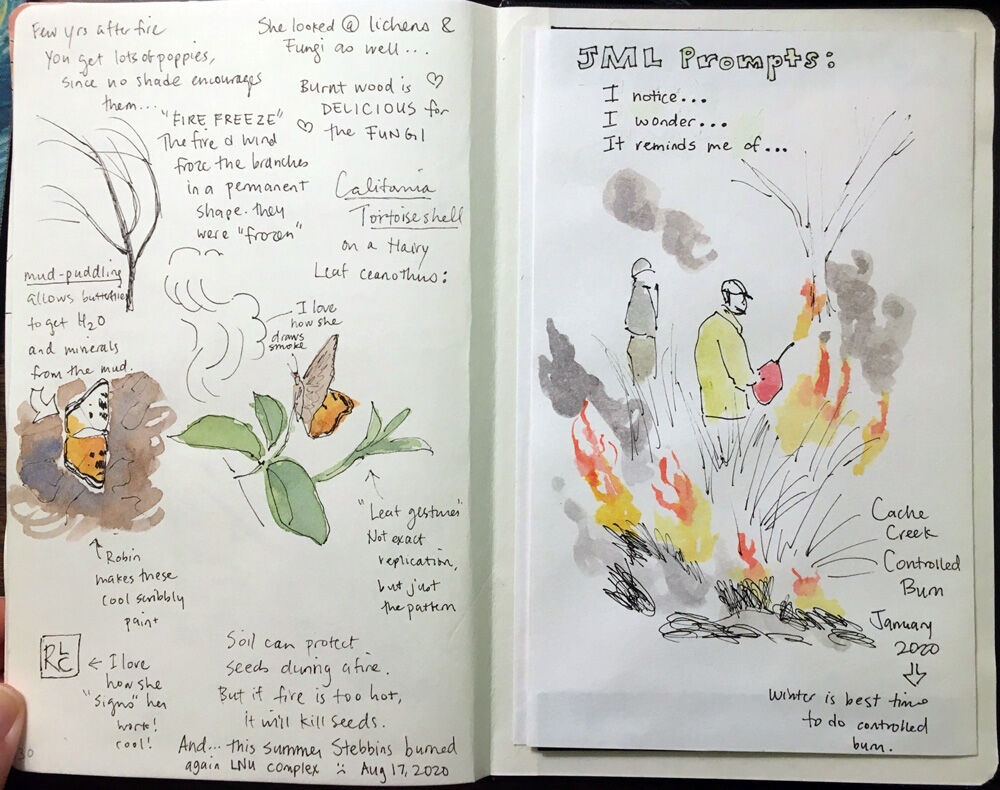 Few yrs after fire
You get lots of poppies,
since no shade encourages
them...
She looked @ lichens &
Fungi as well...
Burnt wood is ♡
DELICIOUS for
♡ the FUNGI
"FIRE FREEZE"
The fire & wind
froze the branches
in a permanent
shape. they
were "frozen"
California
Tortoiseshell
on a Hairy
Leaf ceanothus:
mud-puddling
allows butterflies
to get H2O
and minerals
from the mud.
I love
how she
draws
smoke
Robin
makes these
cool scribbly
paint
"Leaf gestures"
Not exact
replication,
but just
the pattern
RLC
← I love
how she
"signs" her
work!
cool!
Soil can protect
seeds during a fire.
But if fire is too hot,
it will kill seeds.
And... this summer Stebbins burned
again LNU complex :( Aug 17, 2020
30
JML Prompts:
I notice...
I wonder...
It reminds me of...
Cache
Creek
Controlled
Burn
January
2020
Winter is best time
to do controlled
burn.